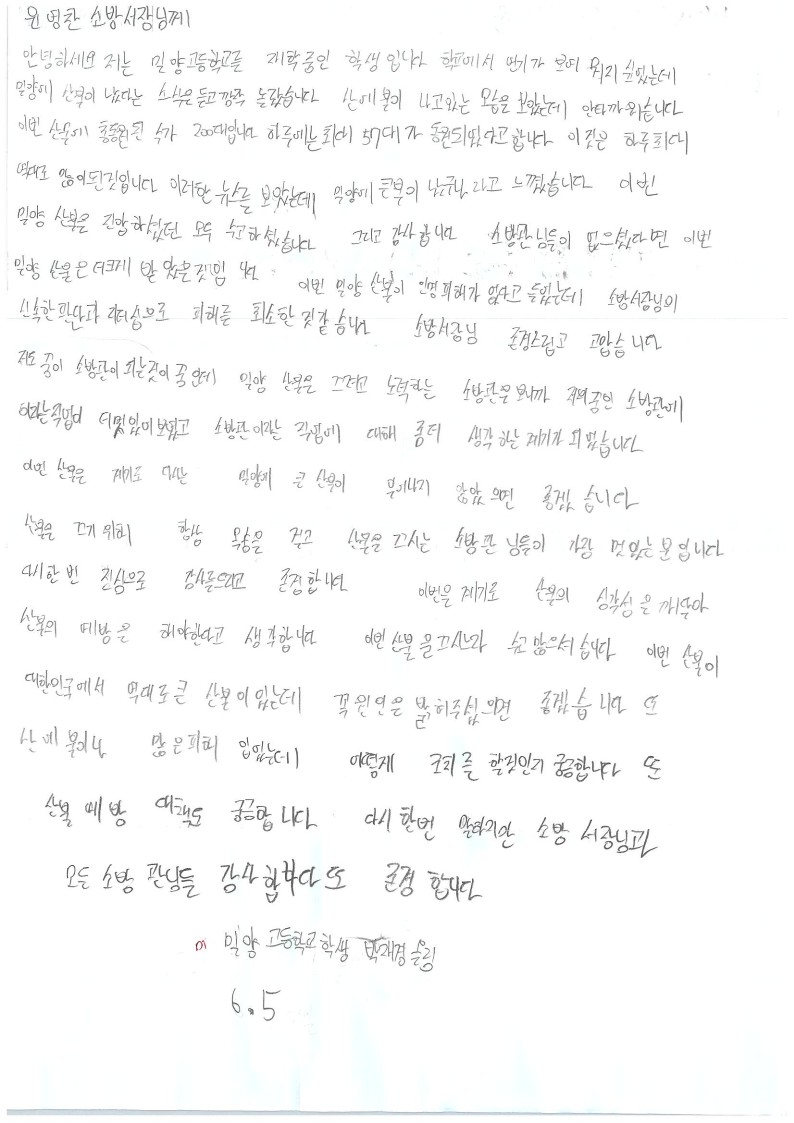 윤영찬 소방서장님께
안녕하세요 저는 밀양고등학교를 재학중인 학생 입니다 학교에서 연기가 보여 뭐지 싶었는데
밀양에 산불이 났다는 소식을 듣고 깜짝 놀랐습니다 산에 불이 나고 있는 모습을 보았는데 안타까웠습니다
이번 산불에 동원된 수가 200대입니다 하루에는 최대 57대가 동원되었다고 합니다 이것은 하루 최대
역대로 많이된것입니다 이러한 뉴스를 보았는데 밀양에 큰불이 났구나 라고 느꼈습니다 이번
밀양 산불은 진압하셨던 모두 수고하셨습니다 그리고 감사합니다 소방관님들이 없으셨다면 이번
밀양 산불은 더크게 났었을것입니다 이번 밀양 산불이 인명피해가 없다고 들었는데 소방서장님의
신속한 판단과 리더십으로 피해를 최소한것같습니다 소방서장님 존경스럽고 고맙습니다
저도 꿈이 소방관이 되는것이 꿈인데 밀양 산불을 끄려고 노력하는 소방관을 보니까 저의 꿈인 소방관에
이라는직업이 더멋있어보였고 소방관이라는 직업에 대해 좀더 생각하는 계기가 되었습니다
이번 산불은 계기로 다시는 밀양에 큰 산불이 않았으면 좋겠습니다
산불을 끄기 위해 항상 목숨을 걸고 산불을 끄시는 소방관 님들이 가장 멋있는분입니다
다시한번 진심으로 감사를드리고 존경합니다 이번을 계기로 산불의 심각성을 깨달아
산불의 예방은 해야한다고 생각합니다 이번 산불을끄시느라 수고 많으셨습니다 이번 산불이
대한민국에서 역대로 큰 산불이 있는데 꼭 원인은 밝혀주셨으면 좋겠습니다 또
산에 불이나 많은피해 입었는데 어떻게 조치를 할것인지 궁금합니다 또
산불 예방 대책도 궁금합니다 다시 한번 말하지만 소방 서장님과
모든 소방 관님들 감사합니다 또 존경 합니다
밀양 고등학교 학생 박재경 올림
6.5